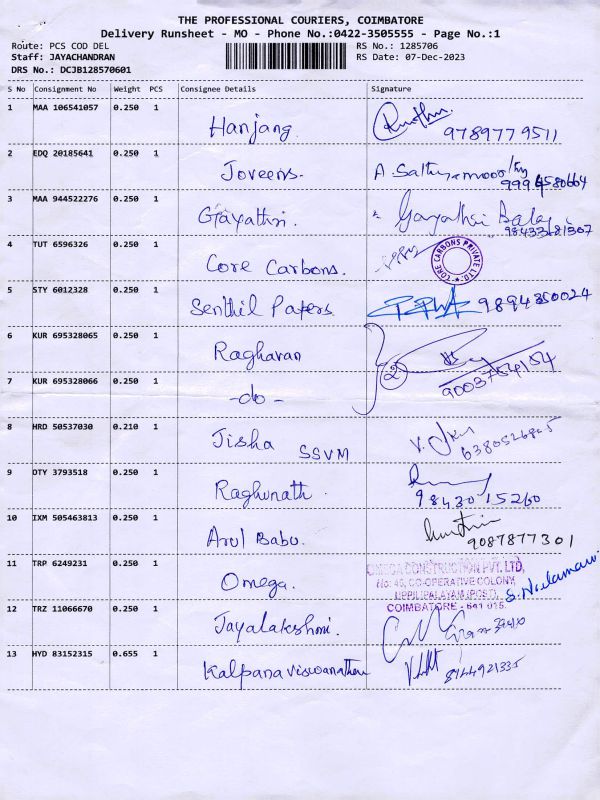 THE PROFESSIONAL COURIERS, COIMBATORE
Delivery Runsheet - MO - Phone No.:0422-3505555 - Page No.:1
Route: PCS COD DEL RS No.: 1285706
Staff: JAYACHANDRAN RS Date: 07-Dec-2023
DRS No.: DCJB128570601
S No Consignment No Weight PCS Consignee Details Signature
1 MAA 106541057 0.250 1 Hanjang. 9789779511
2 EDQ 20185641 0.250 1 Joveens. A.
3 MAA 944522276 0.250 1 Gayathri. Gayathri Balaji
4 TUT 6596326 0.250 1 Core Carbons. CORE CARBONS PRIVATE LTD
5 STY 6012328 0.250 1 Senthil Papers 9894350024
6 KUR 695328065 0.250 1 Raghavan
7 KUR 695328066 0.250 1 -do- 2 9003754154
8 HRD 50537030 0.210 1 Jisha SSVM
9 DTY 3793518 0.250 1 Raghunath. 9843015260
10 IXM 505463813 0.250 1 Arul Babu. 9087877301
11 TRP 6249231 0.250 1 Omega. OMEGA CONSTRUCTION PVT. LTD,
No: 40, CO-OPERATIVE COLONY,
UPPILIPALAYAM (POST),
COIMBATORE - 641 015.
12 TRZ 11066670 0.250 1 Jayalakshmi.
13 HYD 83152315 0.655 1 Kalpana viswanathan 8144921335